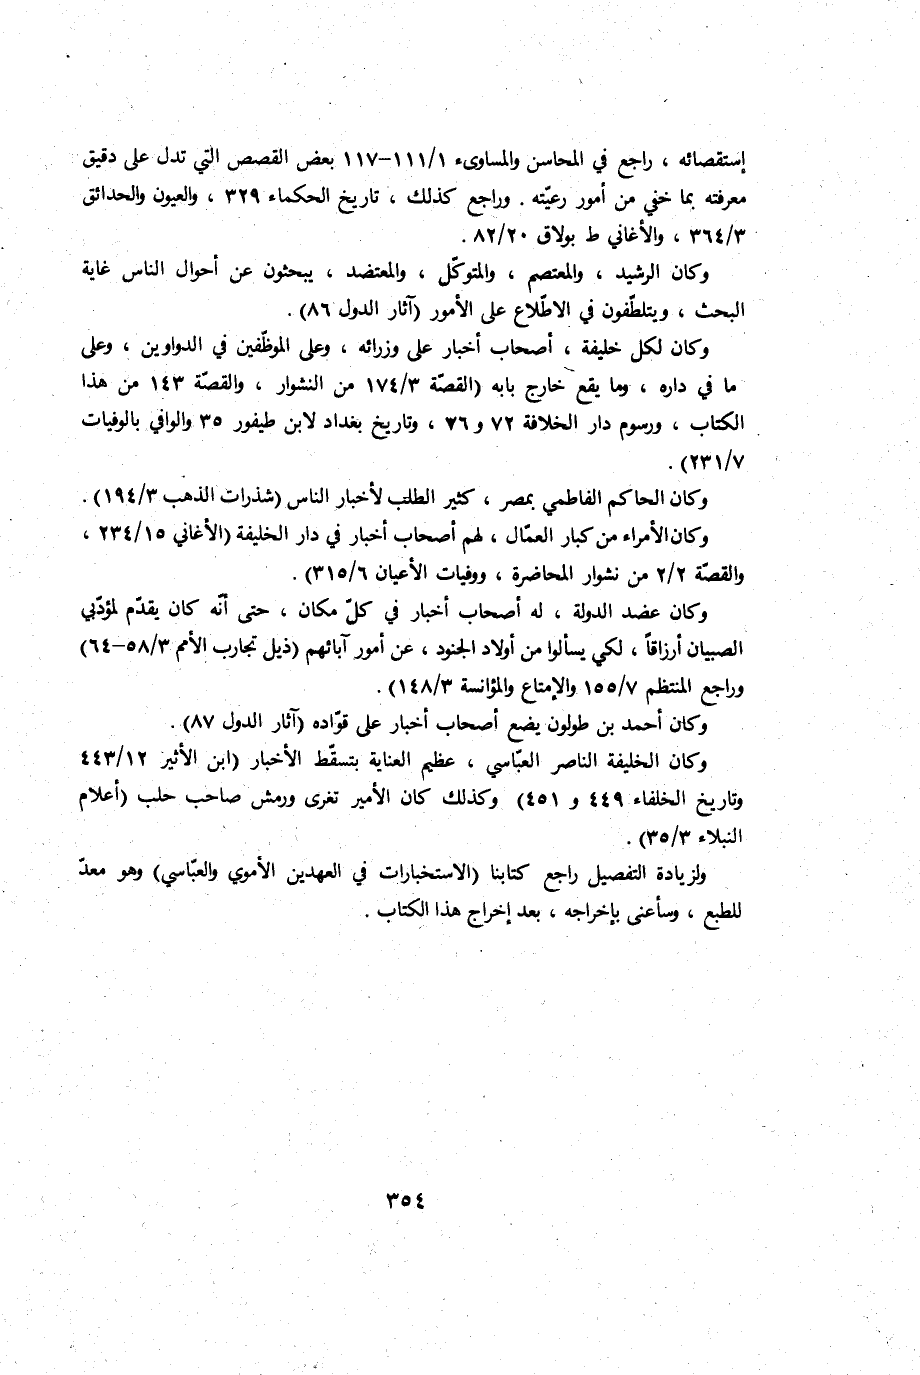 إستقصائه ، راجع في المحاسن والمساوىء ١١١/١–١١٧ بعض القصص التي تدل على دقيق
معرفته بما خفي من أمور رعيّته . وراجع كذلك ، تاريخ الحكماء ٣٢٩ ، والعيون والحدائق
٣٦٤/٣ ، والأغاني ط بولاق ٨٢/٢٠ .
وكان الرشيد ، والمعتصم ، والمتوكّل ، والمعتضد ، يبحثون عن أحوال الناس غاية
البحث ، ويتلطّفون في الاطّلاع على الأمور (آثار الدول ٨٦) .
وكان لكل خليفة ، أصحاب أخبار على وزرائه ، وعلى الموظّفين في الدواوين ، وعلى
ما في داره ، وما يقع خارج بابه (القصّة ١٧٤/٣ من النشوار ، والقصّة ١٤٣ من هذا
الكتاب ، ورسوم دار الخلافة ٧٢ و ٧٦ ، وتاريخ بغداد لابن طيفور ٣٥ والوافي بالوفيات
٢٣١/٧) .
وكان الحاكم الفاطمي بمصر ، كثير الطلب لأخبار الناس (شذرات الذهب ١٩٤/٣) .
وكان الأمراء من كبار العمّال ، لهم أصحاب أخبار في دار الخليفة (الأغاني ٢٣٤/١٥ ،
والقصّة ٢/٢ من نشوار المحاضرة ، ووفيات الأعيان ٣١٥/٦) .
وكان عضد الدولة ، له أصحاب أخبار في كلّ مكان ، حتى أنّه كان يقدّم لمؤدّبي
الصبيان أرزاقاً ، لكي يسألوا من أولاد الجنود ، عن أمور آبائهم (ذيل تجارب الأمم ٥٨/٣–٦٤)
وراجع المنتظم ١٥٥/٧ والإمتاع والمؤانسة ١٤٨/٣) .
وكان أحمد بن طولون يضع أصحاب أخبار على قوّاده (آثار الدول ٨٧) .
وكان الخليفة الناصر العبّاسي ، عظيم العناية بتسقّط الأخبار (ابن الأثير ٤٤٣/١٢
وتاريخ الخلفاء ٤٤٩ و ٤٥١) وكذلك كان الأمير تغرى ورمش صاحب حلب (أعلام
النبلاء ٣٥/٣) .
ولزيادة التفصيل راجع كتابنا (الاستخبارات في العهدين الأموي والعبّاسي) وهو معدّ
للطبع ، وسأعنى بإخراجه ، بعد إخراج هذا الكتاب .
٣٥٤